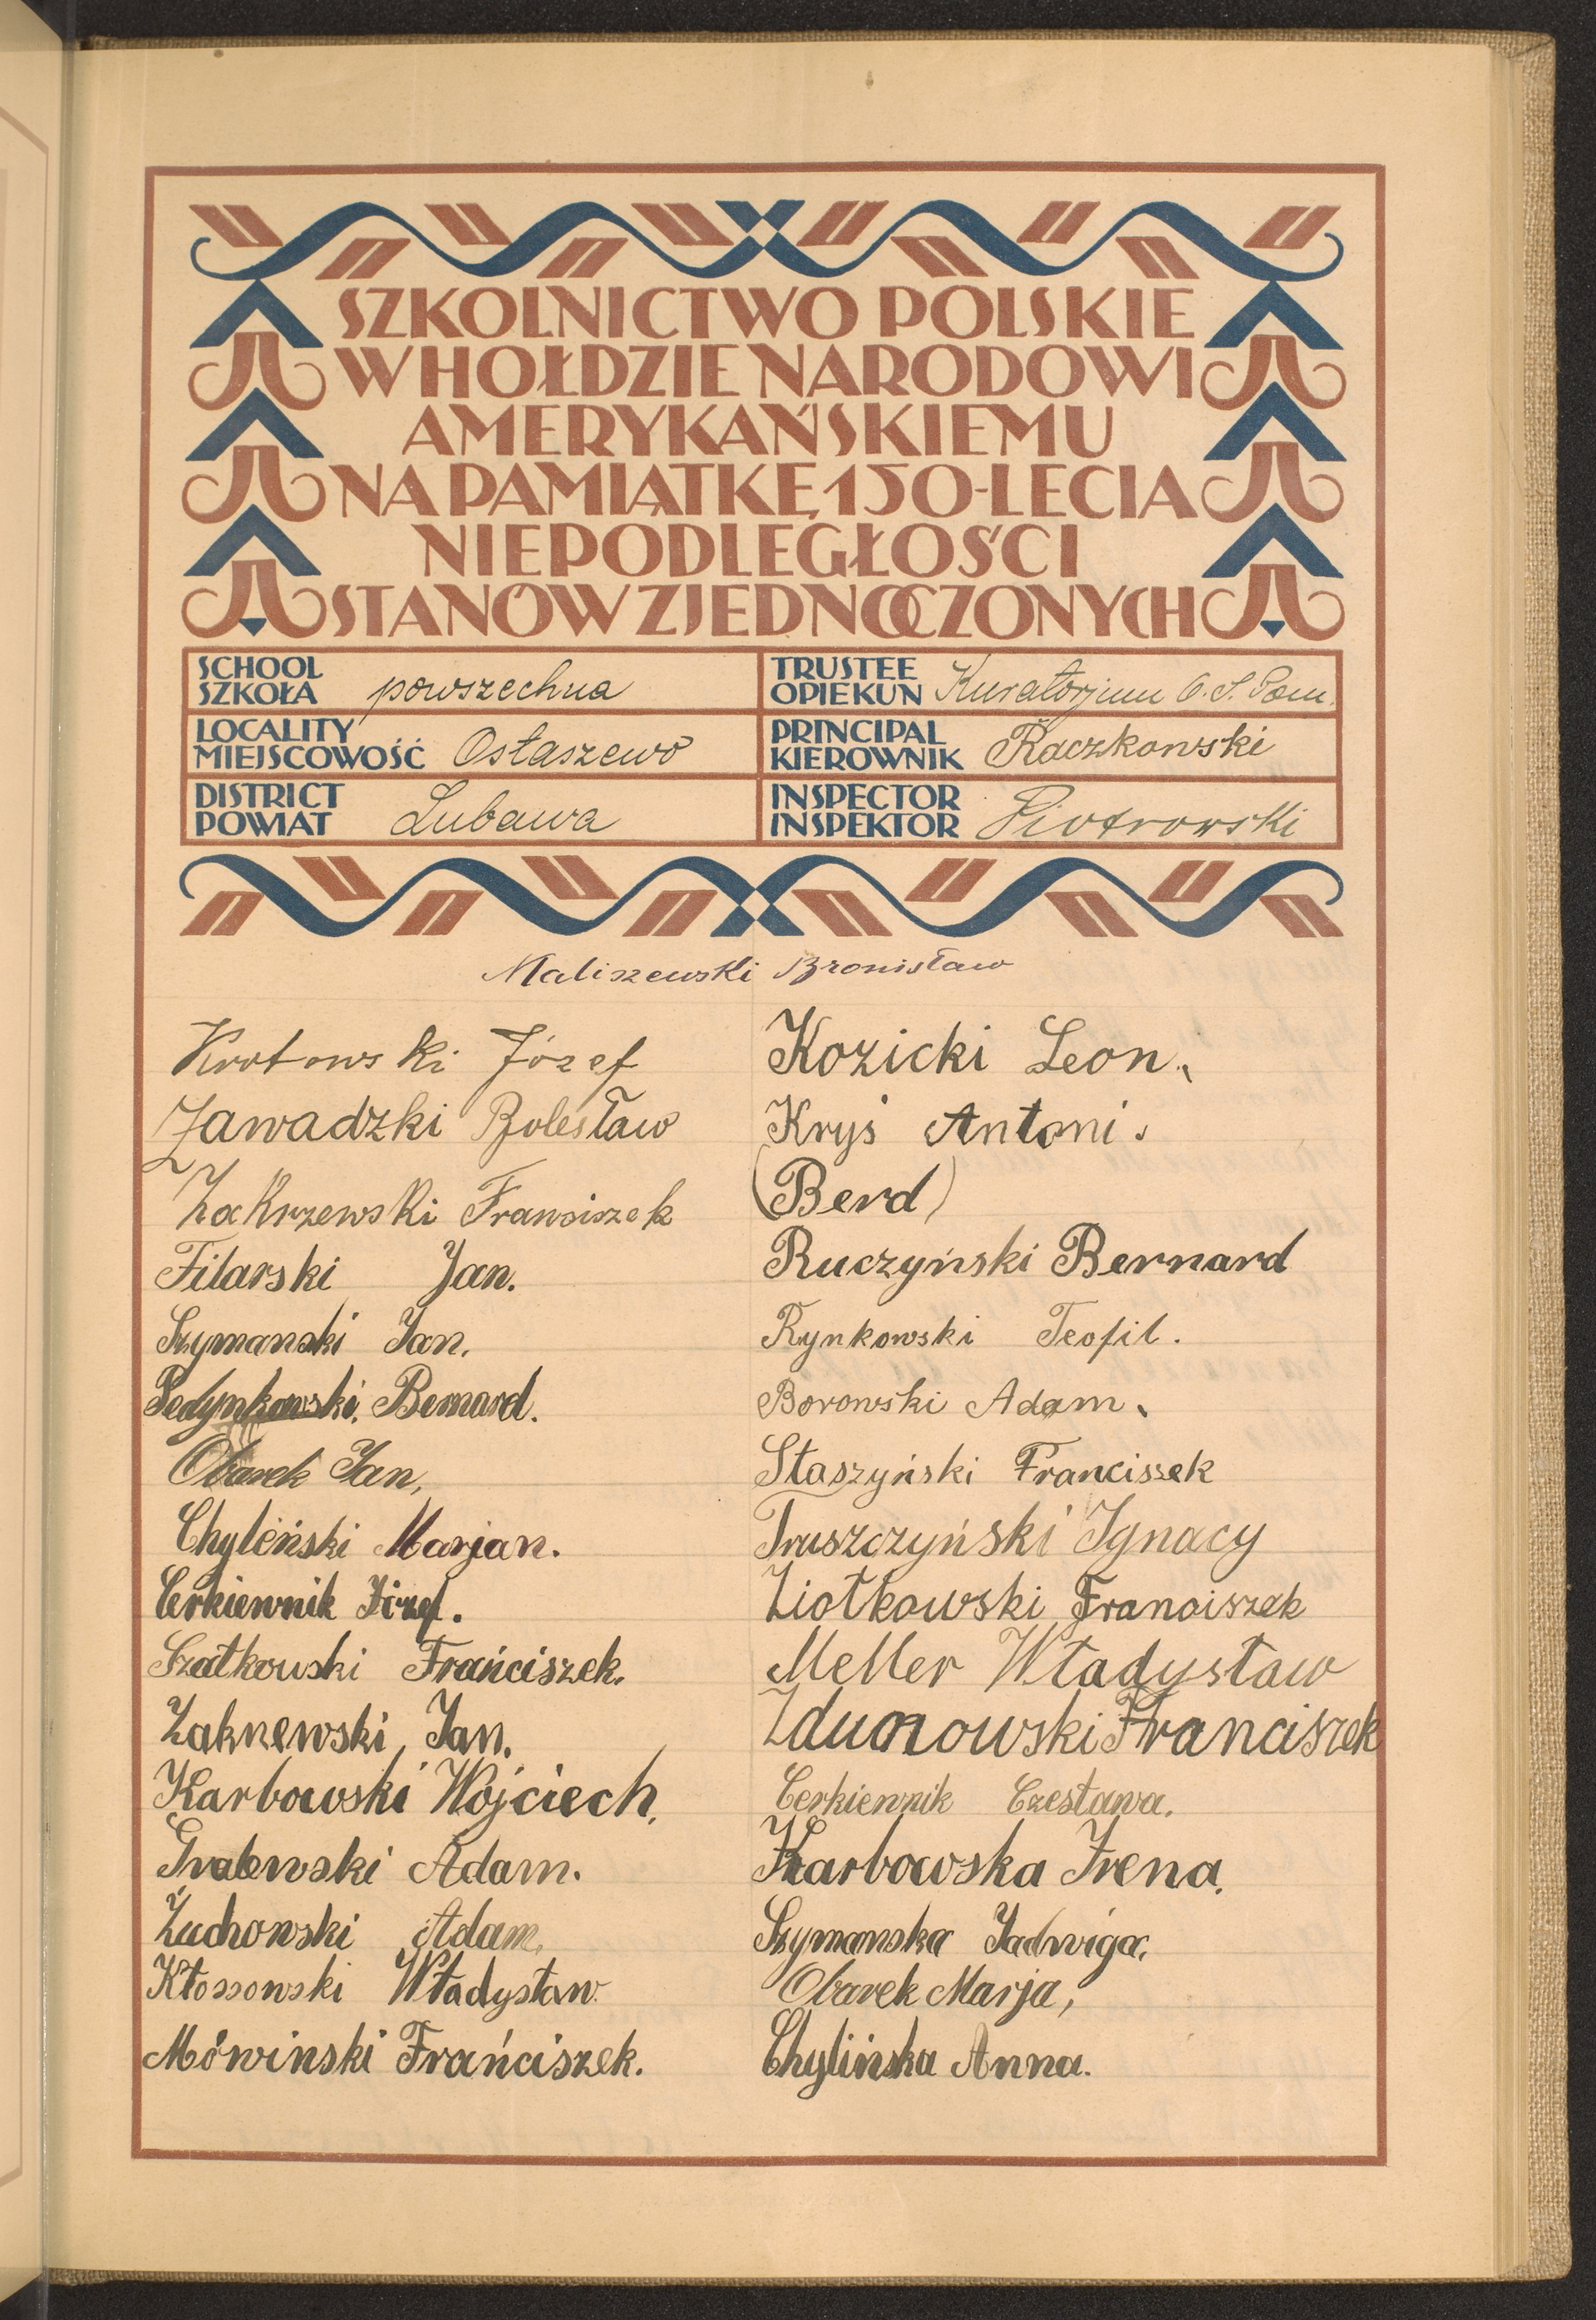 SZKOLNICTWO POLSKIE
W HOŁDZIE NARODOWI
AMERYKAŃSKIEMU
NA PAMIĄTKĘ 150-LECIA
NIEPODLEGŁOŚCI
STANÓW ZJEDNOCZONYCH
SCHOOL
SZKOŁA powszechna
TRUSTEE
OPIEKUN Kuratorjum O. S. Pom.
LOCALITY
MIEJSCOWOŚĆ Ostaszewo
PRINCIPAL
KIEROWNIK Raczkowski
DISTRICT
POWIAT Lubawa
INSPECTOR
INSPEKTOR Piotrowski
Maliszewski Bronisław
Krotowski Józef
Zawadzki Bolesław
Zakrzewski Franciszek
Filarski Jan.
Szymanski Jan.
Bernard.
Obarek Jan,
Chyleński Marjan.
Cerkiewnik Józef.
Szatkowski Frańciszek.
Jan.
Karbowski Wojciech.
Gralewski Adam.
Żuchowski Adam.
Kłossowski Władysław.
Mówinski Frańciszek.
Kozicki Leon.
Kryś Antoni.
(Berd)
Ruczyński Bernard
Rynkowski Teofil.
Borowski Adam.
Staszyński Franciszek
Truszczyński Ignacy
Ziołkowski Franciszek
Meller Władysław
Zdunowski Franciszek
Cerkiewnik Czesława.
Karbowska Irena.
Szymanska Jadwiga.
Obarek Marja,
Chylińska Anna.